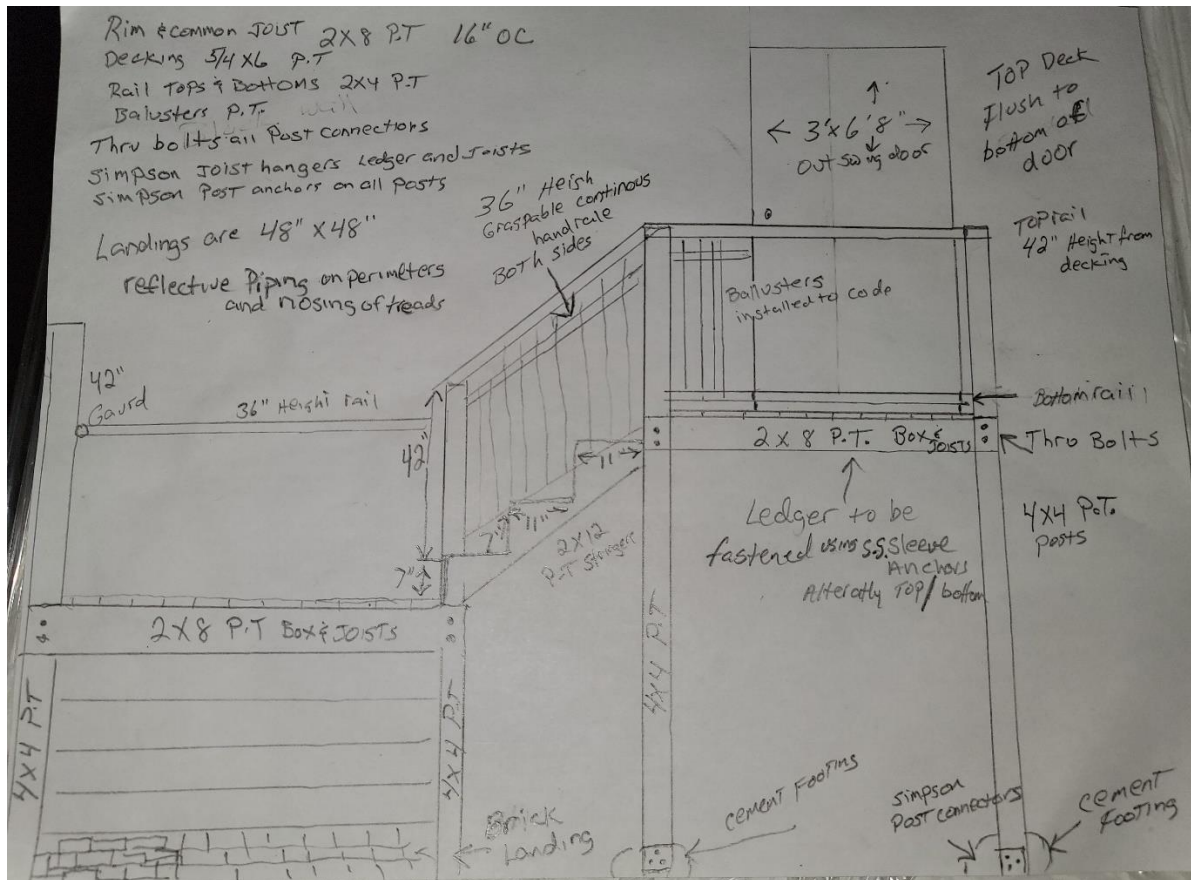 Rim & common JOIST 2X8 P.T 16" OC
Decking 5/4X6 P.T
Rail Tops & Bottoms 2X4 P.T
Balusters P.T.
Thru bolts all Post connectors
Simpson Joist hangers Ledger and Joists
Simpson Post anchors on all Posts
Landings are 48" X 48"
reflective Piping on perimeters
and nosing of treads
36" Heigh
Graspable continous
handrale
Both sides
3'x6'8"
out swing door
TOP Deck
flush to
bottom of
door
TOP rail
42" Height from
decking
Ballusters
installed to code
42"
Gaurd
36" Height rail
42"
7"
7"
11"
11"
2X12
P.T Stringers
Bottom rail
2X8 P.T. Box &
JOISTS
Thru Bolts
Ledger to be
fastened using S.S. Sleeve
Anchors
Alteratly TOP/bottom
4X4 P.T.
Posts
2X8 P.T Box & JOISTS
4X4 P.T
4X4 P.T
4X4 P.T
Brick
Landing
cement Footing
Simpson
Post connectors
cement
Footing